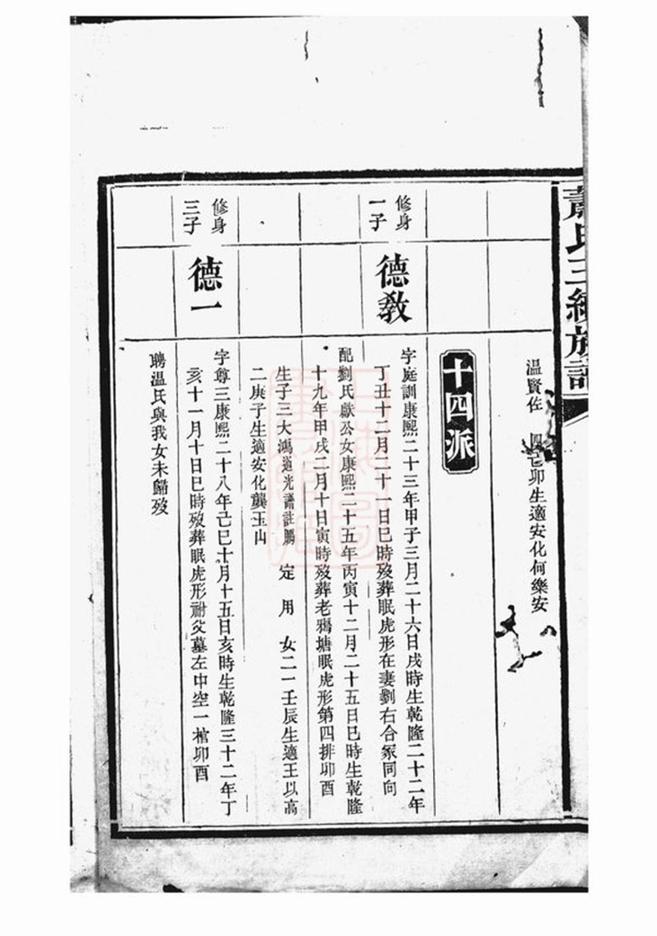 蕭氏三續族譜
温賢佐 四丁卯生適安化何樂安
十四派
修身
一子
德教
字庭訓康熙二十三年甲子三月二十六日戌時生乾隆二十二年
丁丑十二月二十一日巳時歿葬眠虎形在妻劉右合冢同向
配劉氏獻公女康熙二十五年丙寅十二月二十五日巳時生乾隆
十九年甲戌二月十日寅時歿葬老鴉塘眠虎形第四排卯酉
生子三大鴻道光譜註鵬 定 用 女二一壬辰生適王以高
二庚子生適安化龔玉山
修身
三子
德一
字尊三康熙二十八年己巳十月十五日亥時生乾隆三十二年丁
亥十一月十日巳時歿葬眠虎形祔父墓左中空一棺卯酉
聘温氏與我女未歸歿